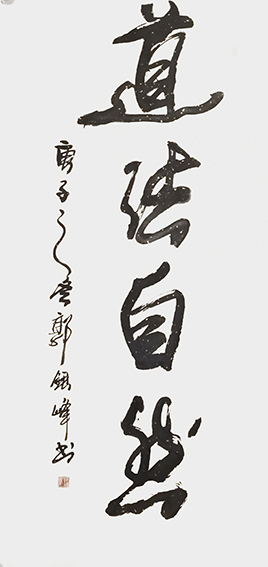 道法自然
庚子之夏郭银峰书